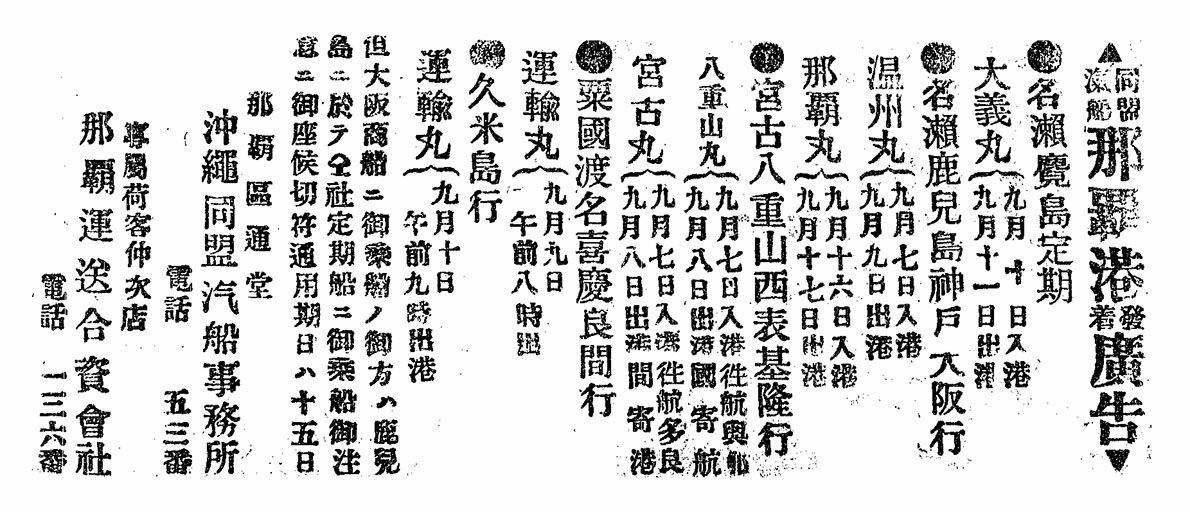 ▲同盟汽船那覇港發着廣告▼
●名瀬鹿児島定期
大義丸
九月十日入港
九月十一日出港
●名瀬鹿兒島神戸大阪行
温州丸
九月七日入港
九月九日出港
那覇丸
九月十六日入港
九月十七日出港
●宮古八重山西表基隆行
八重山丸
九月七日入港往航與那
九月八日出港國寄航
宮古丸
九月七日入港往航多良
九月八日出港間寄港
●粟國渡名喜慶良間行
運輸丸
九月九日
午前八時出
●久米島行
運輸丸
九月十日
午前九時出港
但大阪商船ニ御乘船ノ御方ハ鹿兒
島ニ於テ仝社定期船ニ御乘船御注
意ニ御座候切符通用期日ハ十五日
那覇區通堂
沖繩同盟汽船事務所
電話 五三番
專屬荷客仲次店
那覇運送合資會社
電話 一三六番